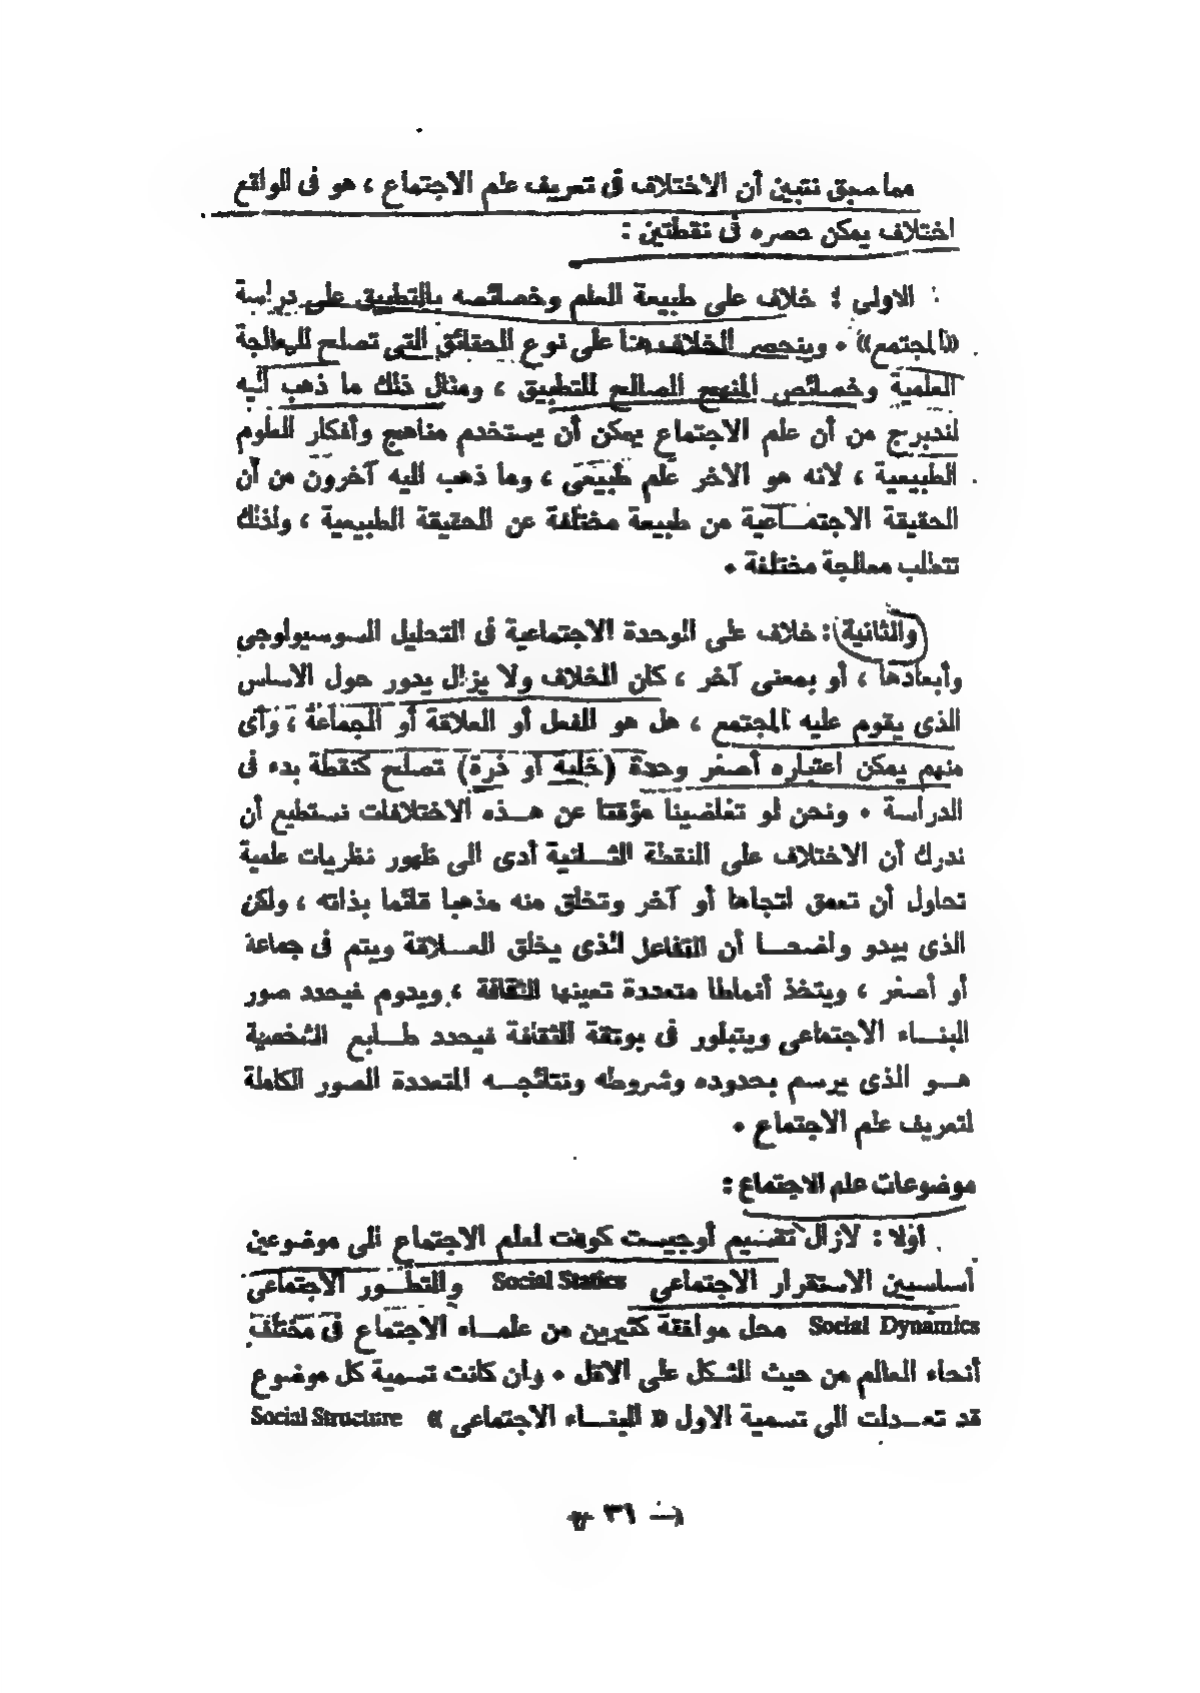 مما سبق نتبين أن الاختلاف فى تعريف علم الاجتماع ، هو فى الواقع
اختلاف يمكن حصره فى نقطتين :
الاولى : خلاف على طبيعة العلم وخصائصه بالتطبيق على دراسة
«المجتمع» . وينحصر الخلاف هنا على نوع الحقائق التى تصلح للمعالجة
العلمية وخصائص المنهج الصالح للتطبيق ، ومثال ذلك ما ذهب اليه
لندبرج من أن علم الاجتماع يمكن أن يستخدم مناهج وأفكار العلوم
الطبيعية ، لانه هو الاخر علم طبيعى ، وما ذهب اليه آخرون من أن
الحقيقة الاجتمـاعية من طبيعة مختلفة عن الحقيقة الطبيعية ، ولذلك
تتطلب معالجة مختلفة .
والثانية : خلاف على الوحدة الاجتماعية فى التحليل السوسيولوجى
وأبعادها ، أو بمعنى آخر ، كان الخلاف ولا يزال يدور حول الاساس
الذى يقوم عليه المجتمع ، هل هو الفعل أو العلاقة أو الجماعة ، وأى
منهم يمكن اعتباره أصغر وحدة (خلية أو ذرة) تصلح كنقطة بدء فى
الدراسة . ونحن لو تغاضينا مؤقتا عن هـذه الاختلافات نستطيع أن
ندرك أن الاختلاف على النقطة الثـانية أدى الى ظهور نظريات علمية
تحاول أن تعمق اتجاها أو آخر وتخلق منه مذهبا قائما بذاته ، ولكن
الذى يبدو واضحـا أن التفاعل الذى يخلق العـلاقة ويتم فى جماعة
أو أصغر ، ويتخذ أنماطا متعددة تعينها الثقافة ، ويدوم فيحدد صور
البنـاء الاجتماعى ويتبلور فى بوتقة الثقافة فيحدد طـابع الشخصية
هـو الذى يرسم بحدوده وشروطه ونتائجـه المتعددة الصور الكاملة
لتعريف علم الاجتماع .
موضوعات علم الاجتماع :
أولا : لازال تقسيم أوجيست كونت لعلم الاجتماع الى موضوعين
أساسيين الاستقرار الاجتماعى Social Statics والتطـور الاجتماعى
Social Dynamics محل موافقة كثيرين من علمـاء الاجتماع فى مختلف
أنحاء العالم من حيث الشكل على الاقل . وان كانت تسمية كل موضوع
قد تعـدلت الى تسمية الاول « البنـاء الاجتماعى » Social Structure
— ٣١ —